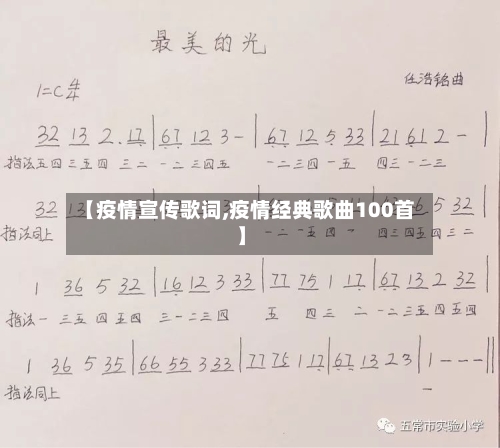 最美的光
1=C 4/4
任浩铭曲
32 13 2. 17 | 67 12 3 - | 67 12 5 33 | 21 61 2 - |
指法五四 三五 四 三二 一二 三四五 一二三四 一五 四三 一二三
32 13
【疫情宣传歌词,疫情经典歌曲100首
】
5 32 |
指法同上
1 36 5 32 | 16 12 3 33 | 77 75 1 17 | 67 13 2 32 |
指法一 三五 四 五四 三一二三 四 五 四三 二 一二三五四 五四
1 36 5 35 | 66 55 3 33 | 77 75 1 17 | 67 13 2 3 | 1 - - - ||
指法同上 一
五常市实验小学